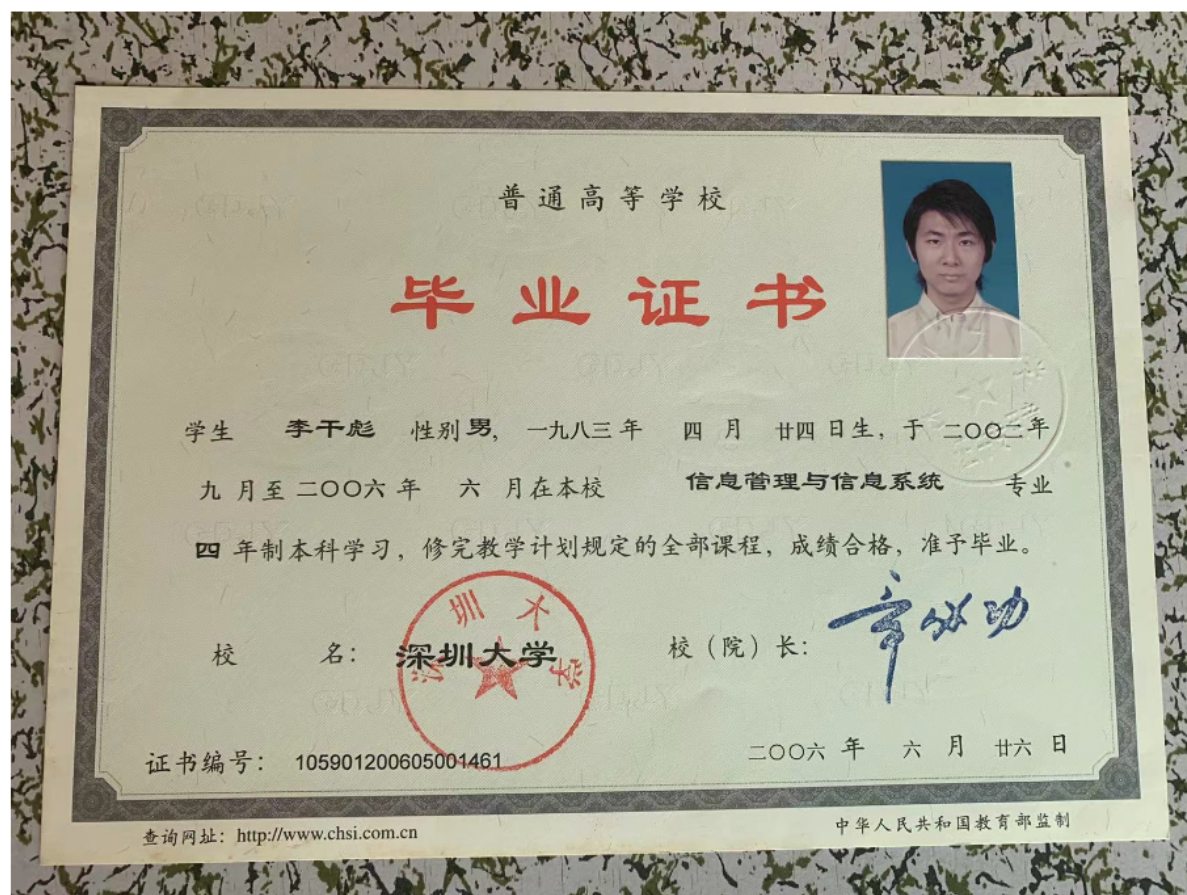 普通高等学校
毕业证书
学生 李干彪 性别男，一九八三年 四月 廿四日生，于二〇〇二年
九月至二〇〇六年 六月在本校 信息管理与信息系统 专业
四年制本科学习，修完教学计划规定的全部课程，成绩合格，准予毕业。
校 名：深圳大学 校（院）长：章必功
深圳大学
证书编号：105901200605001461 二〇〇六年 六月 廿六日
查询网址：http://www.chsi.com.cn 中华人民共和国教育部监制